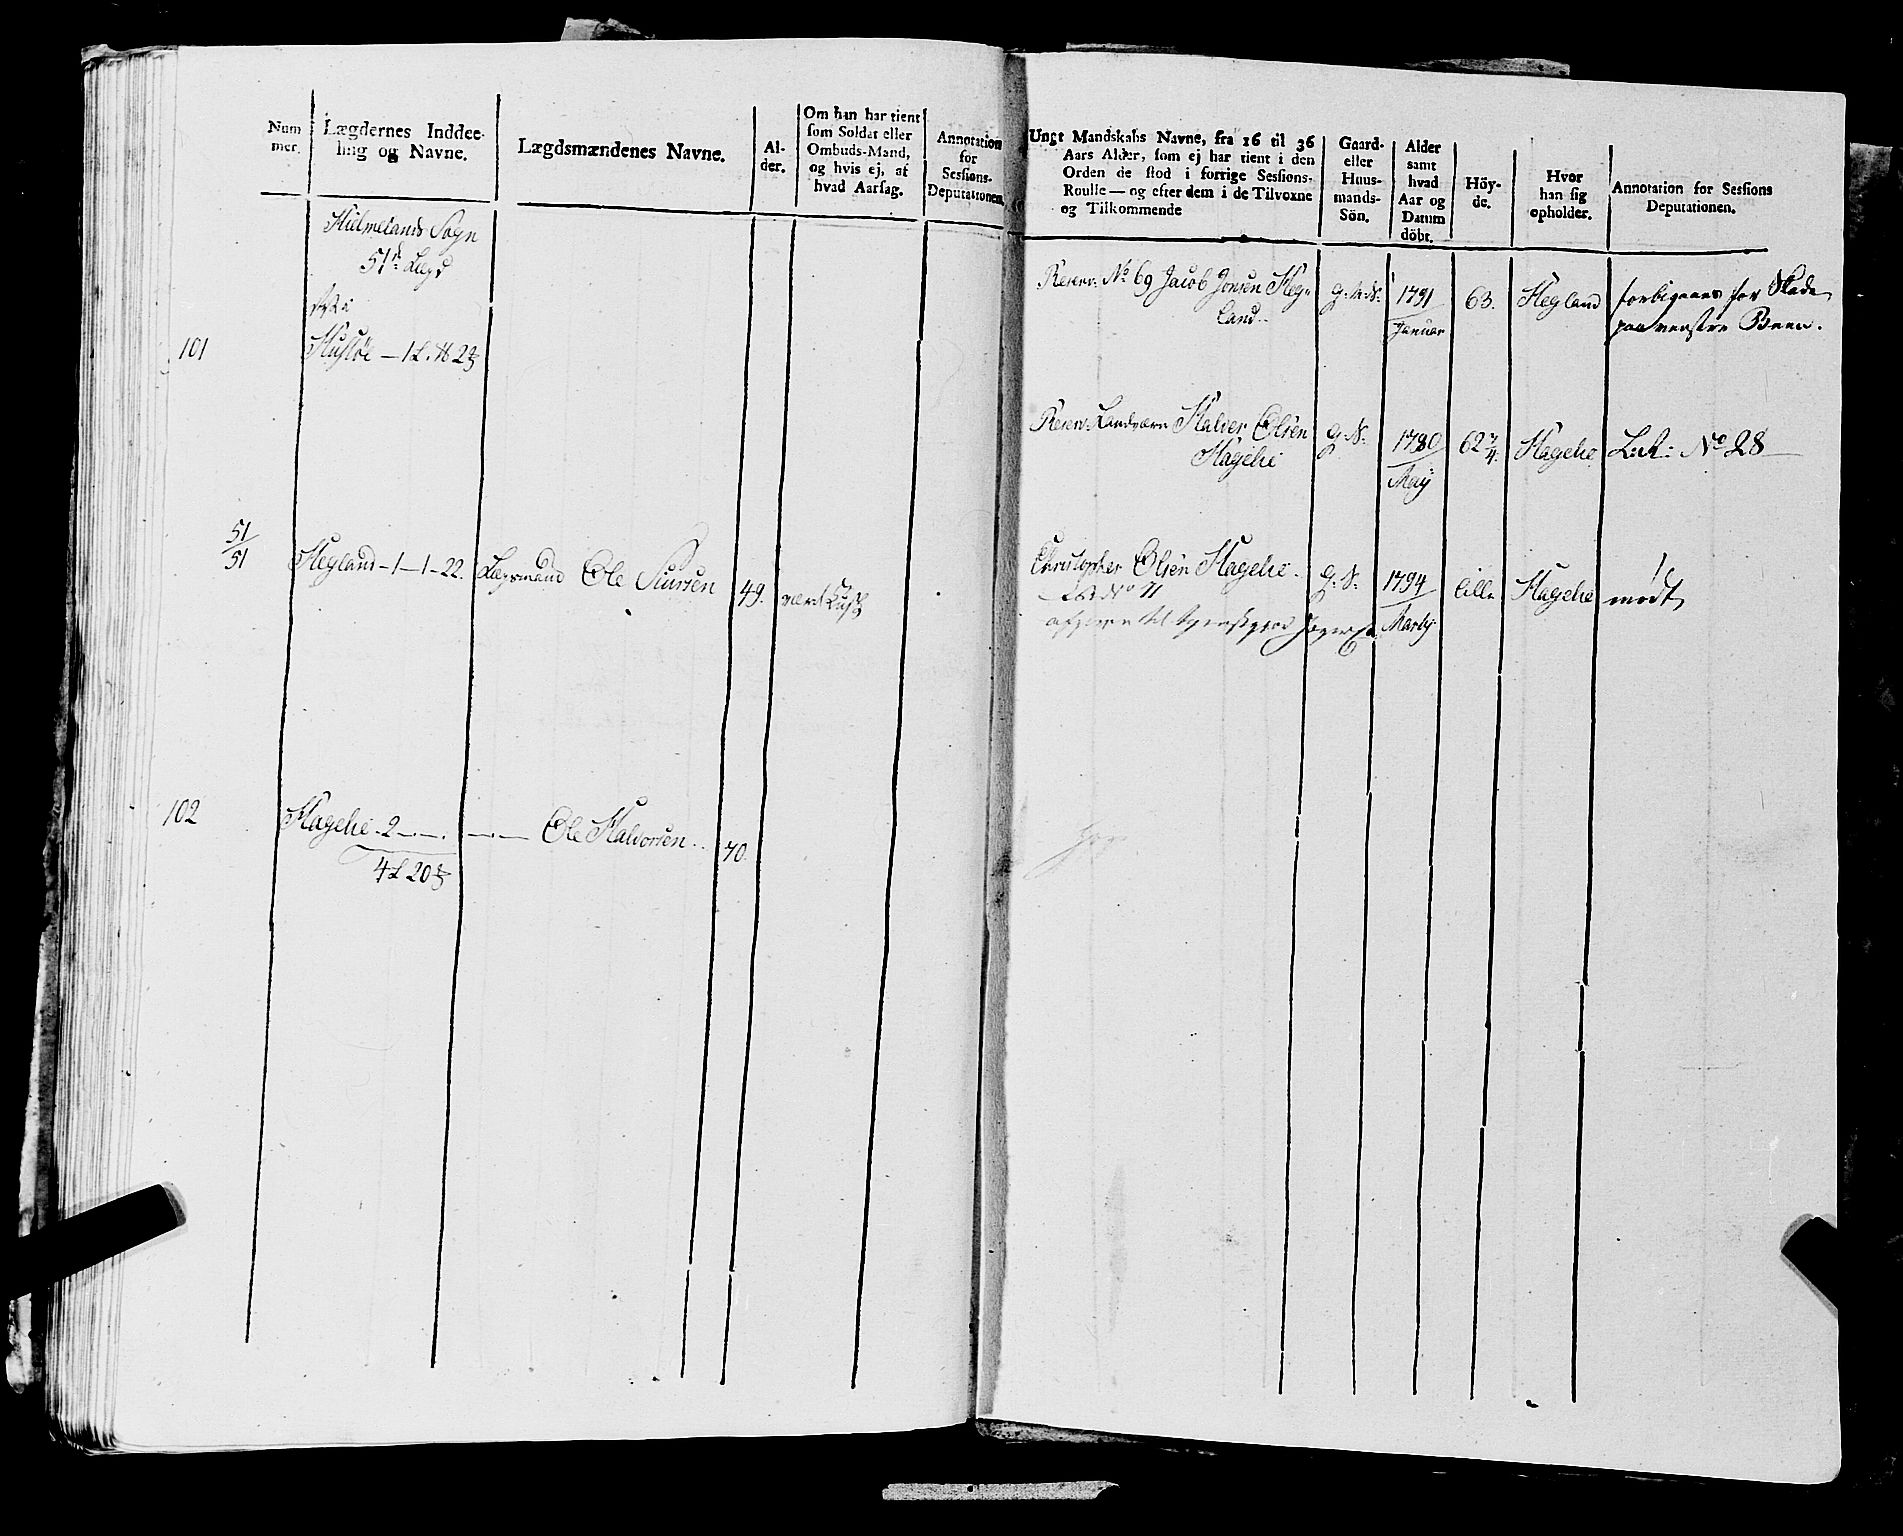 Num
mer.
Lægdernes Inddee-
ling og Navne.
Lægdsmændenes Navne.
Al-
der.
Om han har tient
som Soldat eller
Ombuds-Mand,
og hvis ej, af
hvad Aarsag.
Annotation
for
Sessions-
Deputationen.
Hielmelands Sogn
51de Lægd
101
Husløe — 1 L. 16 2/3
51/51
Hegland - 1 — 1 - 22.
Lægsmand Ole Siursen
49.
102
Hagehei - 2 - . - . - . —
Ole Halvorsen
70.
4 L 20
Ungt Mandskabs Navne, fra 16 til 36
Aars Alder, som ej har tient i den
Orden de stod i forrige Sessions-
Roulle — og efter dem i de Tilvoxne
og Tilkommende
Gaard-
eller
Huus-
mands-
Sön.
Alder
samt
hvad
Aar og
Datum
döbt.
Höy-
de.
Hvor
han sig
opholder.
Annotation for Sessions
Deputationen.
Reserv: No 69 Jacob Jonsen Heg-
land
1791
Januar
63.
Hegland
forbigaaes for Skade
paa venstre Been.
Reserv: Landværn Halver Olsen
Hagehei
G: S:
1780
May
62
Hagehei
L: R: No 28
Christopher Olsen Hagehei
G: S:
1794
Marty
lille
Hagehei
mødt